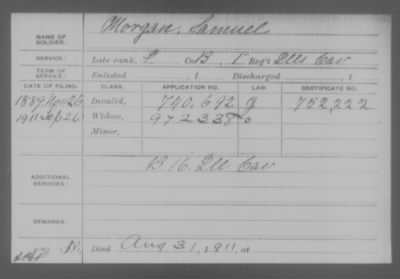 NAME OF SOLDIER: Morgan, Samuel
SERVICE: Late rank, P Co. B, 1" Reg't Ills Cav
TERM OF SERVICE: Enlisted , 1 Discharged , 1
DATE OF FILING. CLASS. APPLICATION NO. LAW. CERTIFICATE NO.
1889 Nov 26 Invalid, 740.692 g 752,222
1911 Sep 26 Widow, 972338 o
Minor,
ADDITIONAL SERVICES: B. 16. Ill Cav
REMARKS:
Died Aug 31, 1911, at